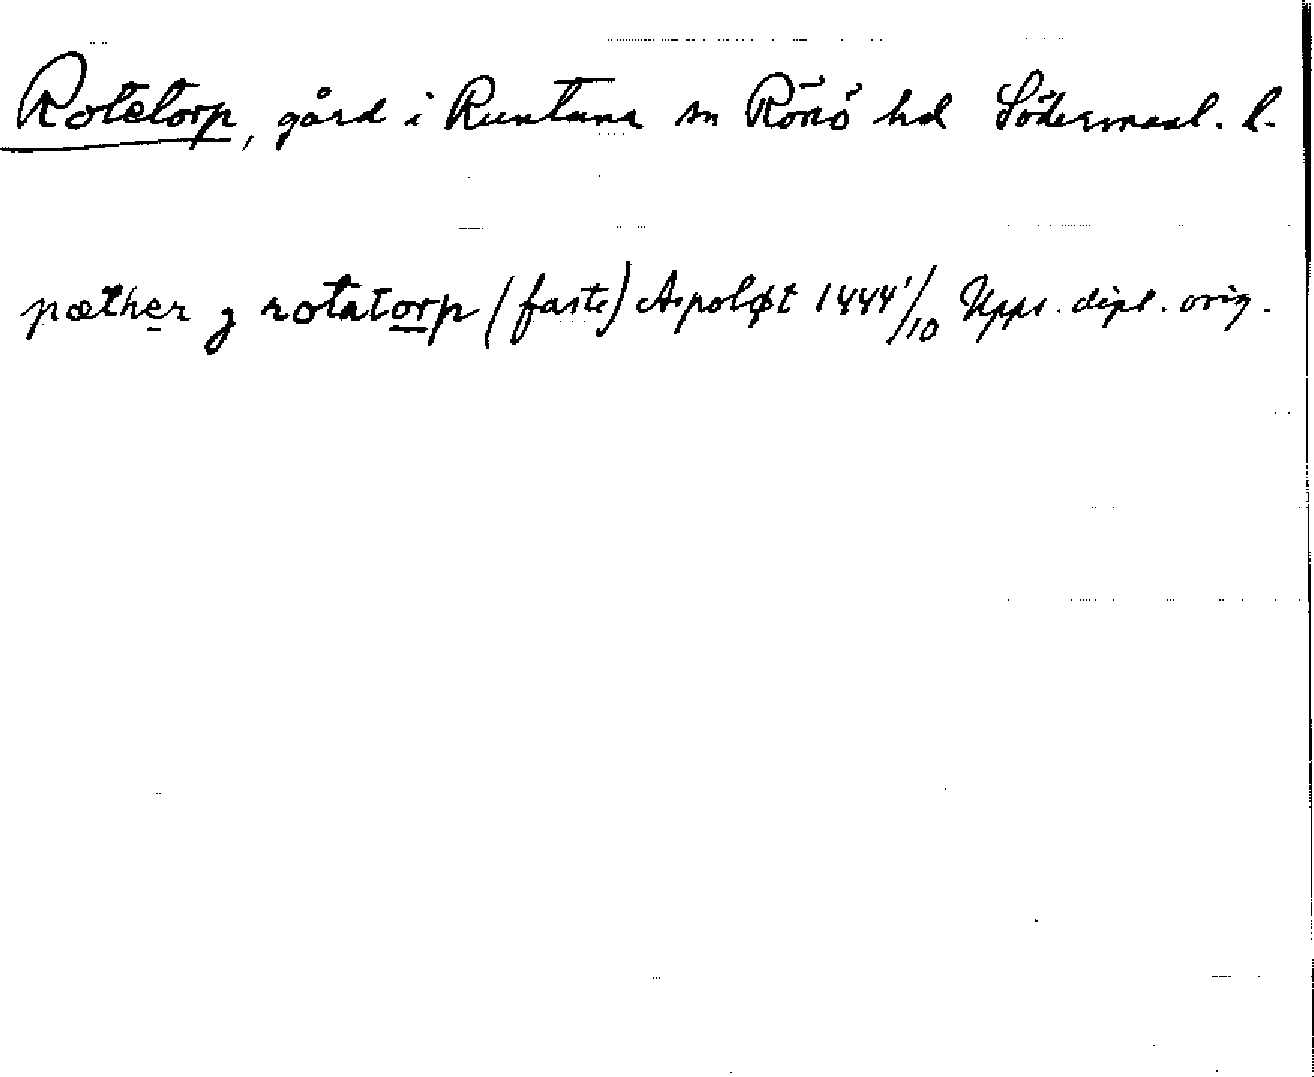 Rotetorp, gård i Runtuna sn Rönö hd Södermanl. l.
pæther j rotatorp (faste) Aspoløt 1444 1/10 Upps. dipl. orig.